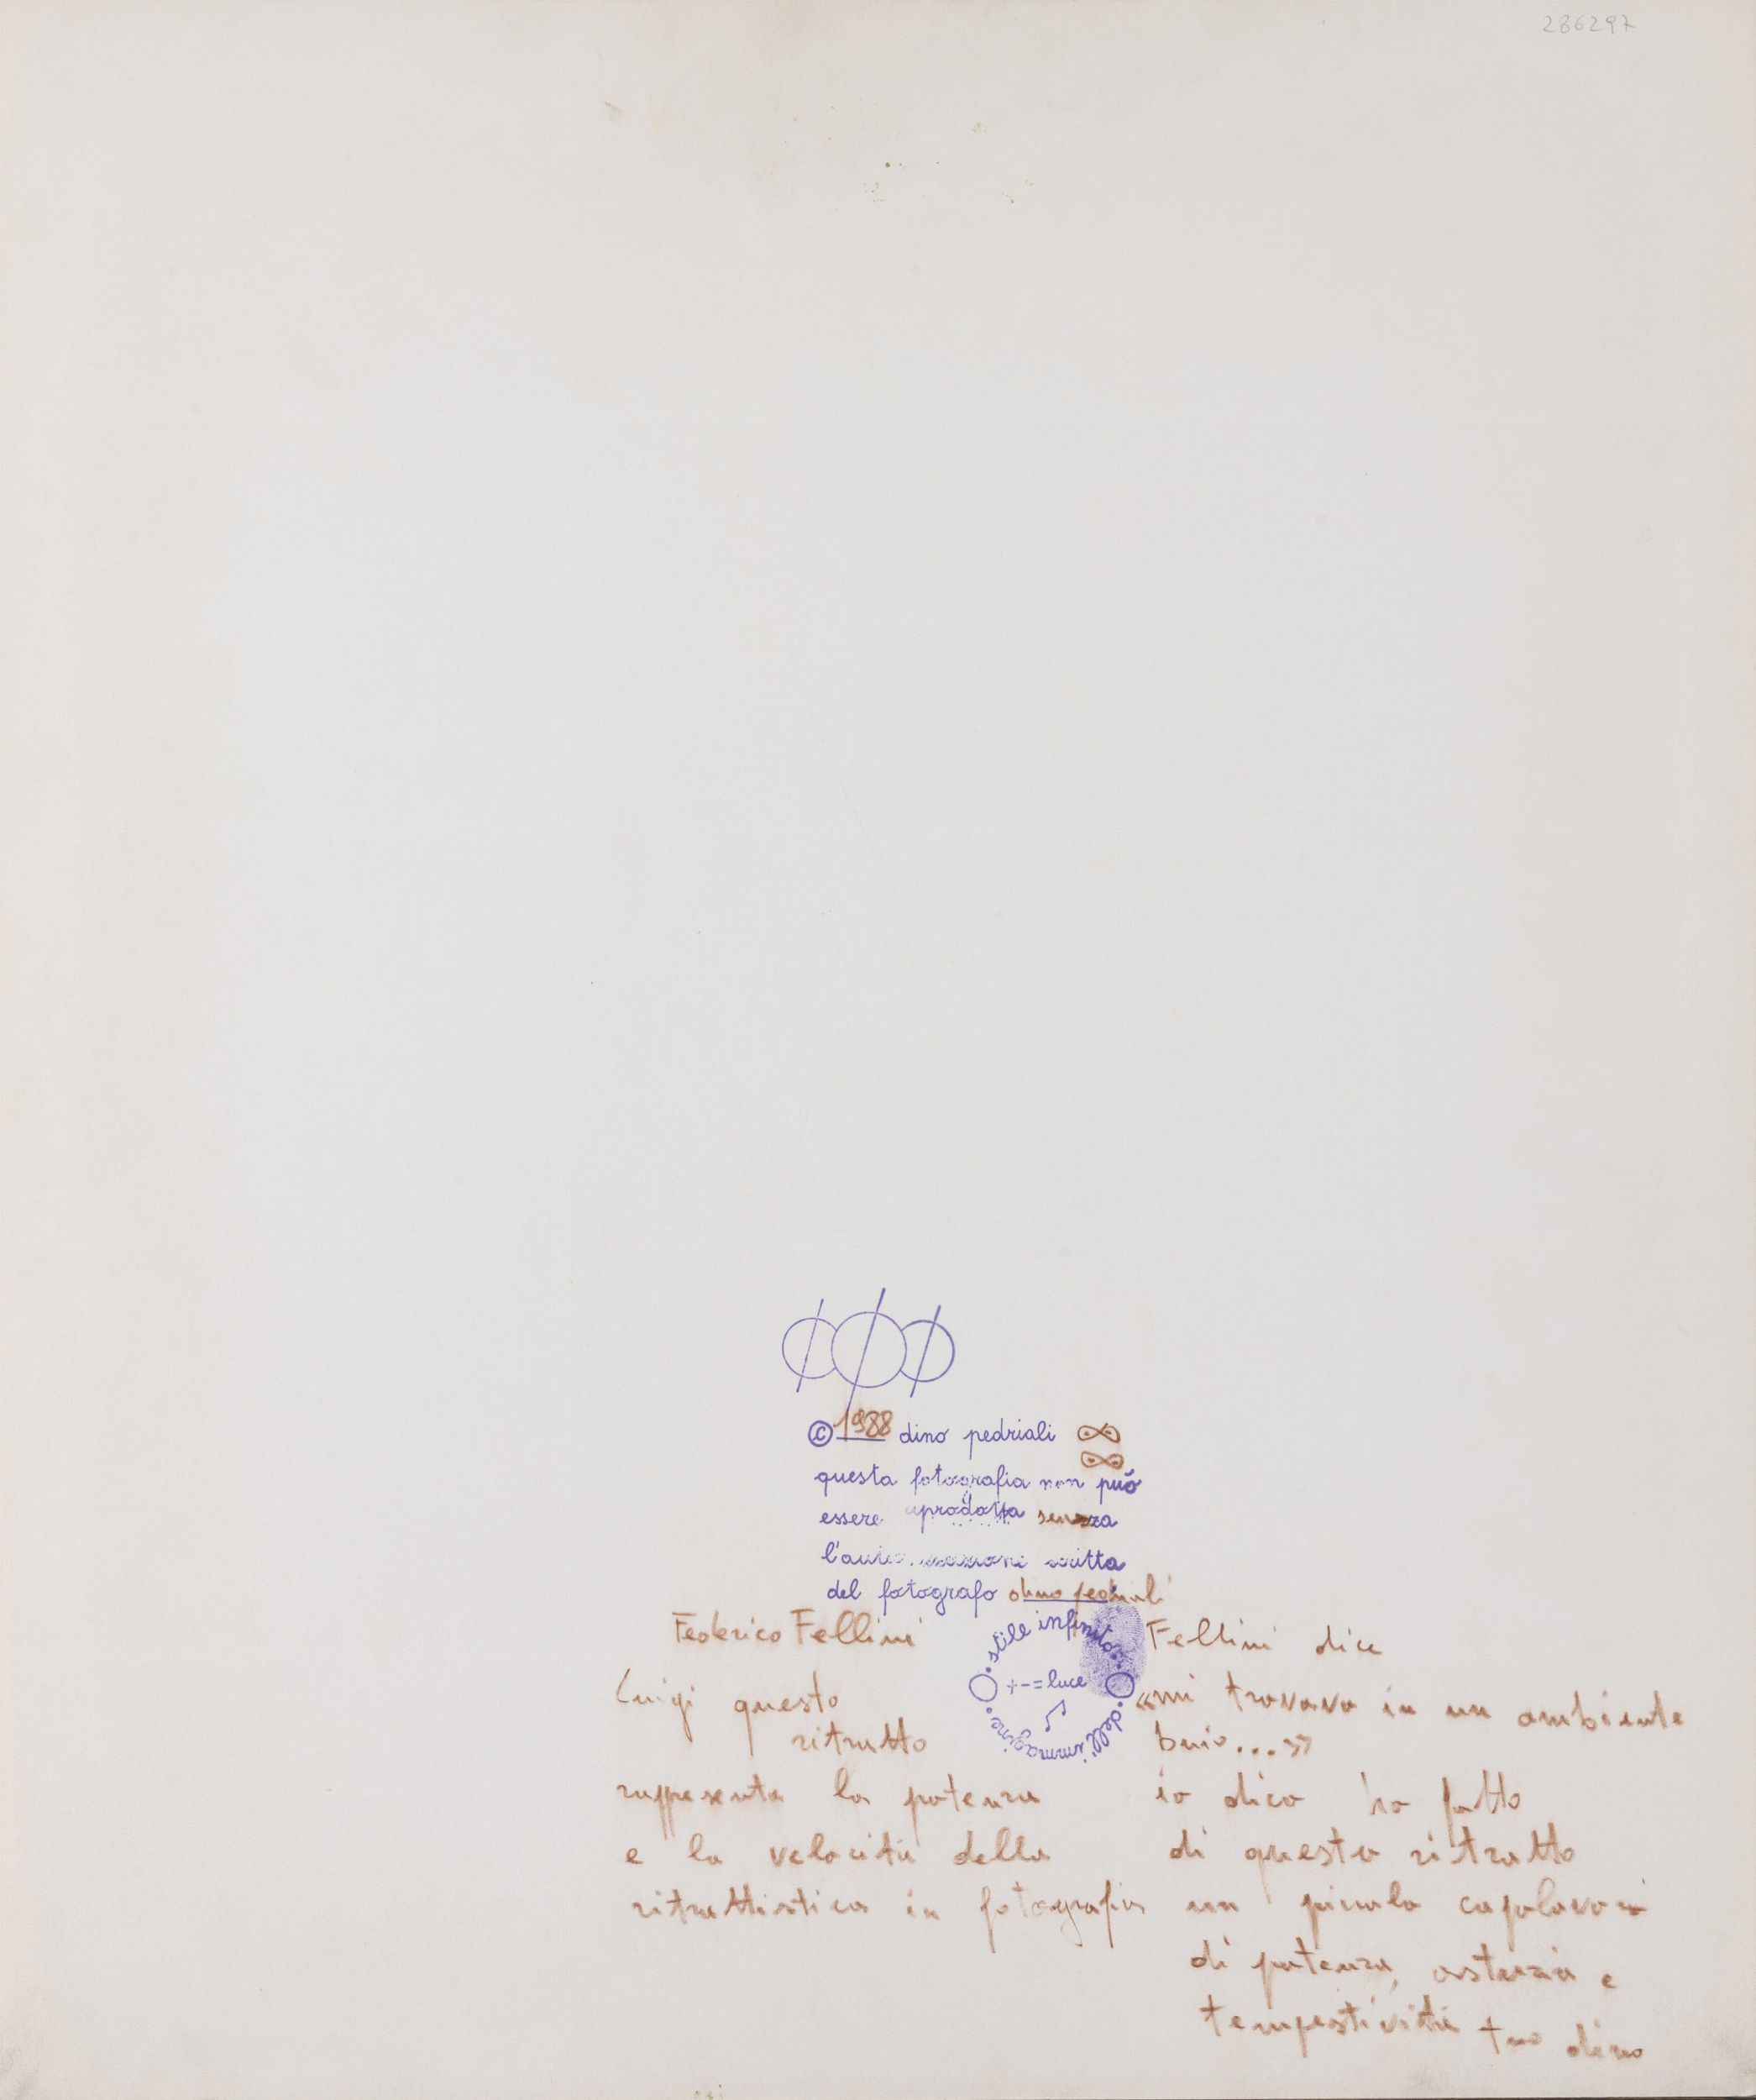 236297
© 1988 dino pedriali
questa fotografia non può
essere riprodotta senza
l'autorizzazione scritta
del fotografo dino pedriali
stile infinito
+-=luce
dell'immagine
Federico Fellini
Luigi questo
ritratto
rappresenta la potenza
e la velocità della
ritrattistica in fotografia
Fellini dice
«mi trovavo in un ambiente
buio...»
io dico ho fatto
di questo ritratto
un piccolo capolavoro
di potenza, astuzia e
tempestività tuo dino